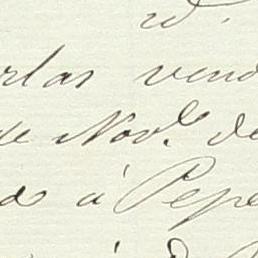 id.
rlas vend
de Nov.e de
os á Pepe